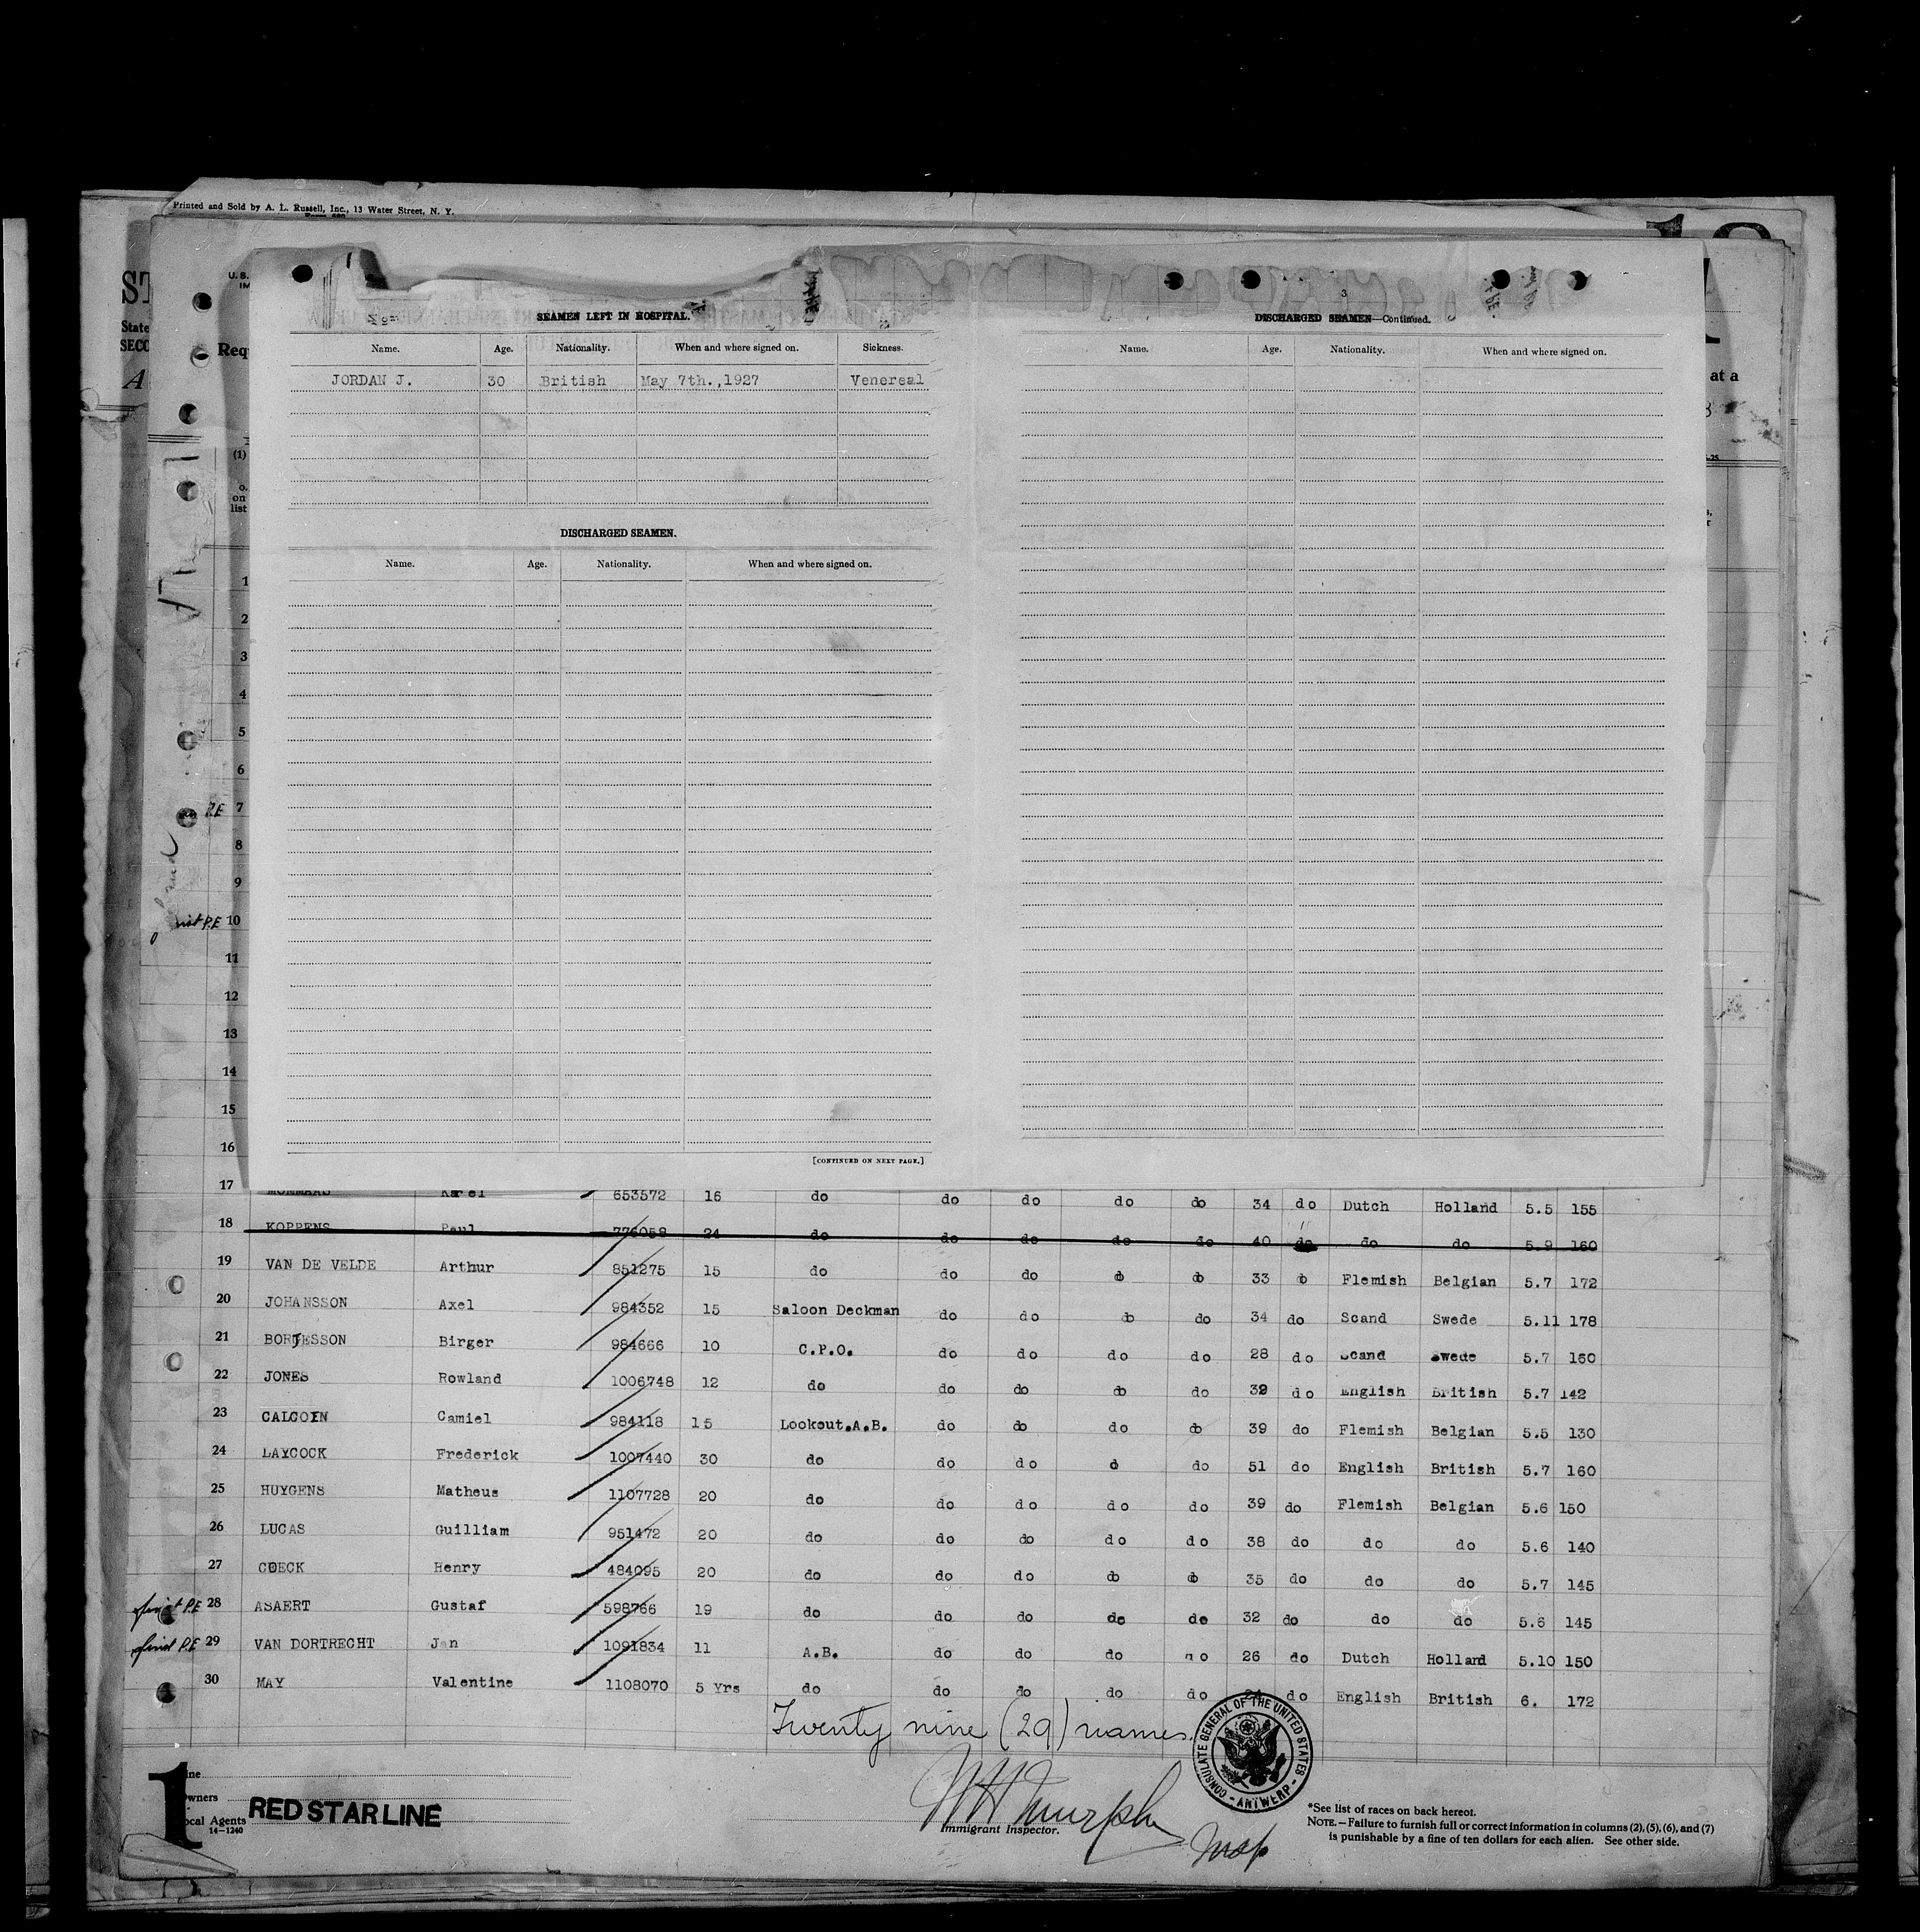 Printed and Sold by A. L. Russell, Inc., 13 Water Street, N. Y.
3
SEAMEN LEFT IN HOSPITAL.
Name. Age. Nationality. When and where signed on. Sickness.
JORDAN J. 30 British May 7th.,1927 Venereal
DISCHARGED SEAMEN.
Name. Age. Nationality. When and where signed on.
[CONTINUED ON NEXT PAGE.]
DISCHARGED SEAMEN—Continued.
Name. Age. Nationality. When and where signed on.
U. S.
State
SECO
Req
at a
(1)
on
list
1
2
3
4
5
6
P.E 7
8
9
P.E 10
11
12
13
14
15
16
17 MOMMAAS Karel 653572 16 do do do do do 34 do Dutch Holland 5.5 155
18 KOPPENS Paul 776058 24 do do do do do 40 do do do 5.9 160
19 VAN DE VELDE Arthur 851275 15 do do do do do 33 do Flemish Belgian 5.7 172
20 JOHANSSON Axel 984352 15 Saloon Deckman do do do do 34 do Scand Swede 5.11 178
21 BORJESSON Birger 984666 10 C.P.O. do do do do 28 do Scand Swede 5.7 160
22 JONES Rowland 1006748 12 do do do do do 39 do English British 5.7 142
23 CALCOEN Camiel 984118 15 Lookout.A.B. do do do do 39 do Flemish Belgian 5.5 130
24 LAYCOCK Frederick 1007440 30 do do do d do 51 do English British 5.7 160
25 HUYGENS Matheus 1107728 20 do do do do do 39 do Flemish Belgian 5.6 150
26 LUCAS Guilliam 951472 20 do do do do do 38 do do do 5.6 140
27 COECK Henry 484095 20 do do do do do 35 do do do 5.7 145
P.E 28 ASAERT Gustaf 598766 19 do do do do do 32 do do do 5.6 145
P.E 29 VAN DORTRECHT Jan 1091834 11 A.B. do do do do 26 do Dutch Holland 5.10 150
30 MAY Valentine 1108070 5 Yrs do do do do do 24 do English British 6. 172
Twenty nine (29) names
CONSULATE GENERAL OF THE UNITED STATES - ANTWERP -
1
Owners
Local Agents RED STAR LINE
14—1240
Immigrant Inspector.
*See list of races on back hereof.
NOTE.—Failure to furnish full or correct information in columns (2), (5), (6), and (7)
is punishable by a fine of ten dollars for each alien. See other side.